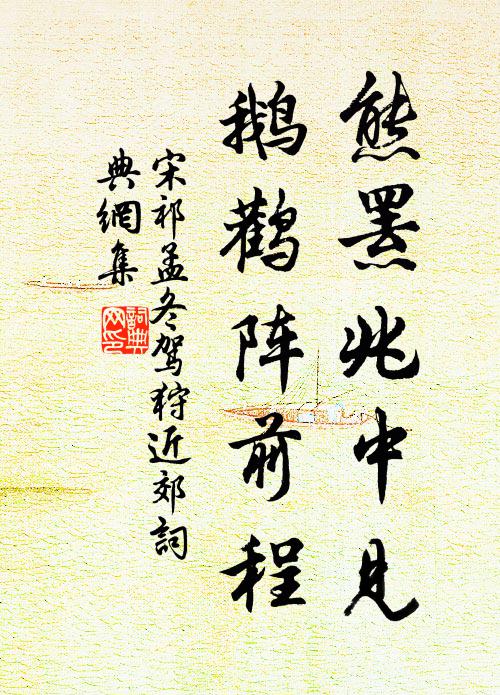 熊罴兆中見
鹅鹳阵前程
宋祁孟冬驾狩近郊詞
典網集
詞典网印